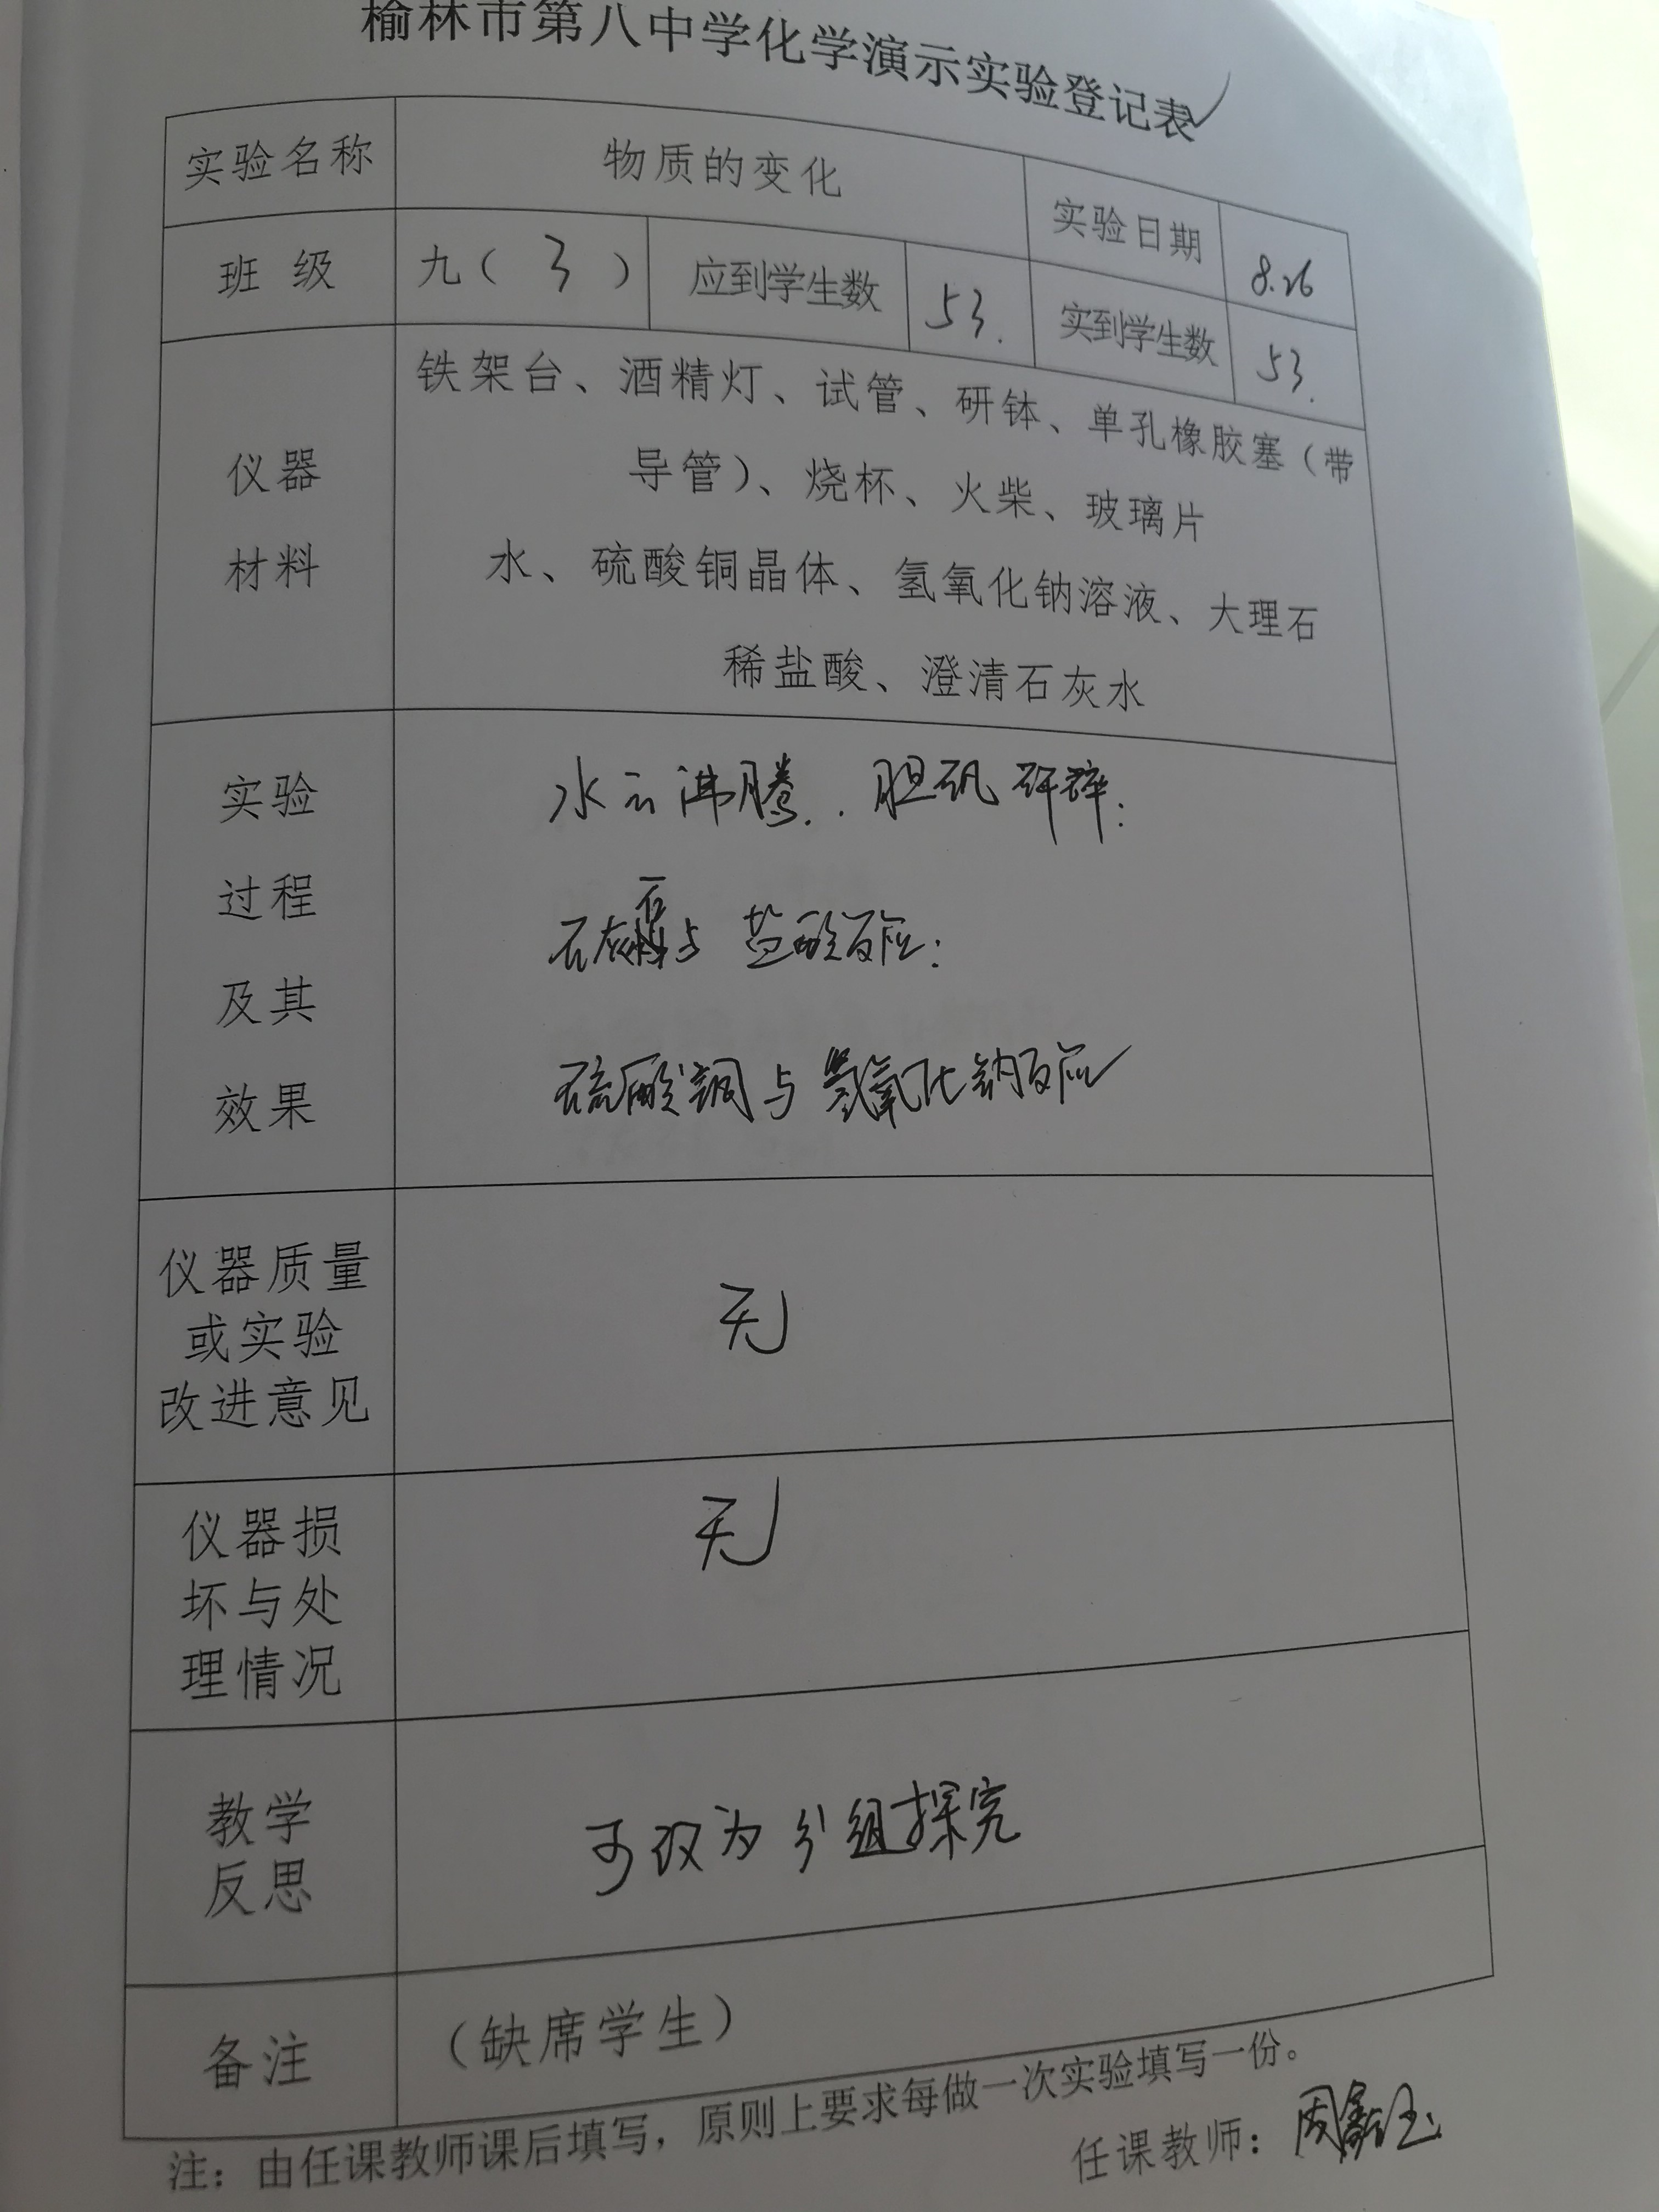 榆林市第八中学化学演示实验登记表
实验名称 物质的变化 实验日期 8.26
班级 九（3） 应到学生数 53. 实到学生数 53.
仪器
材料
铁架台、酒精灯、试管、研钵、单孔橡胶塞（带
导管）、烧杯、火柴、玻璃片
水、硫酸铜晶体、氢氧化钠溶液、大理石
稀盐酸、澄清石灰水
实验
过程
及其
效果
水 沸腾. 胆矾研碎;
石灰石与盐酸反应;
硫酸铜与氢氧化钠反应
仪器质量
或实验
改进意见
无
仪器损
坏与处
理情况
无
教学
反思
可改为分组探究
备注 （缺席学生）
注：由任课教师课后填写，原则上要求每做一次实验填写一份。
任课教师：周